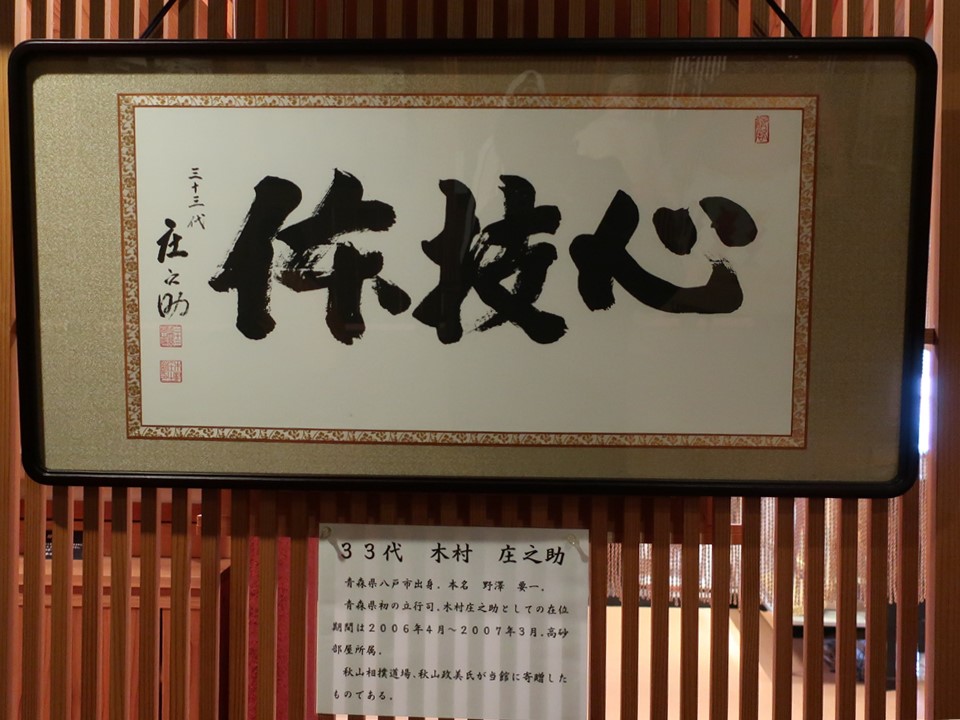 心技体
三十三代
庄之助
33代 木村 庄之助
青森県八戸市出身。本名 野澤 要一。
青森県初の立行司。木村庄之助としての在位
期間は2006年4月～2007年3月。高砂
部屋所属。
秋山相撲道場、秋山政美氏が当館に寄贈した
ものである。